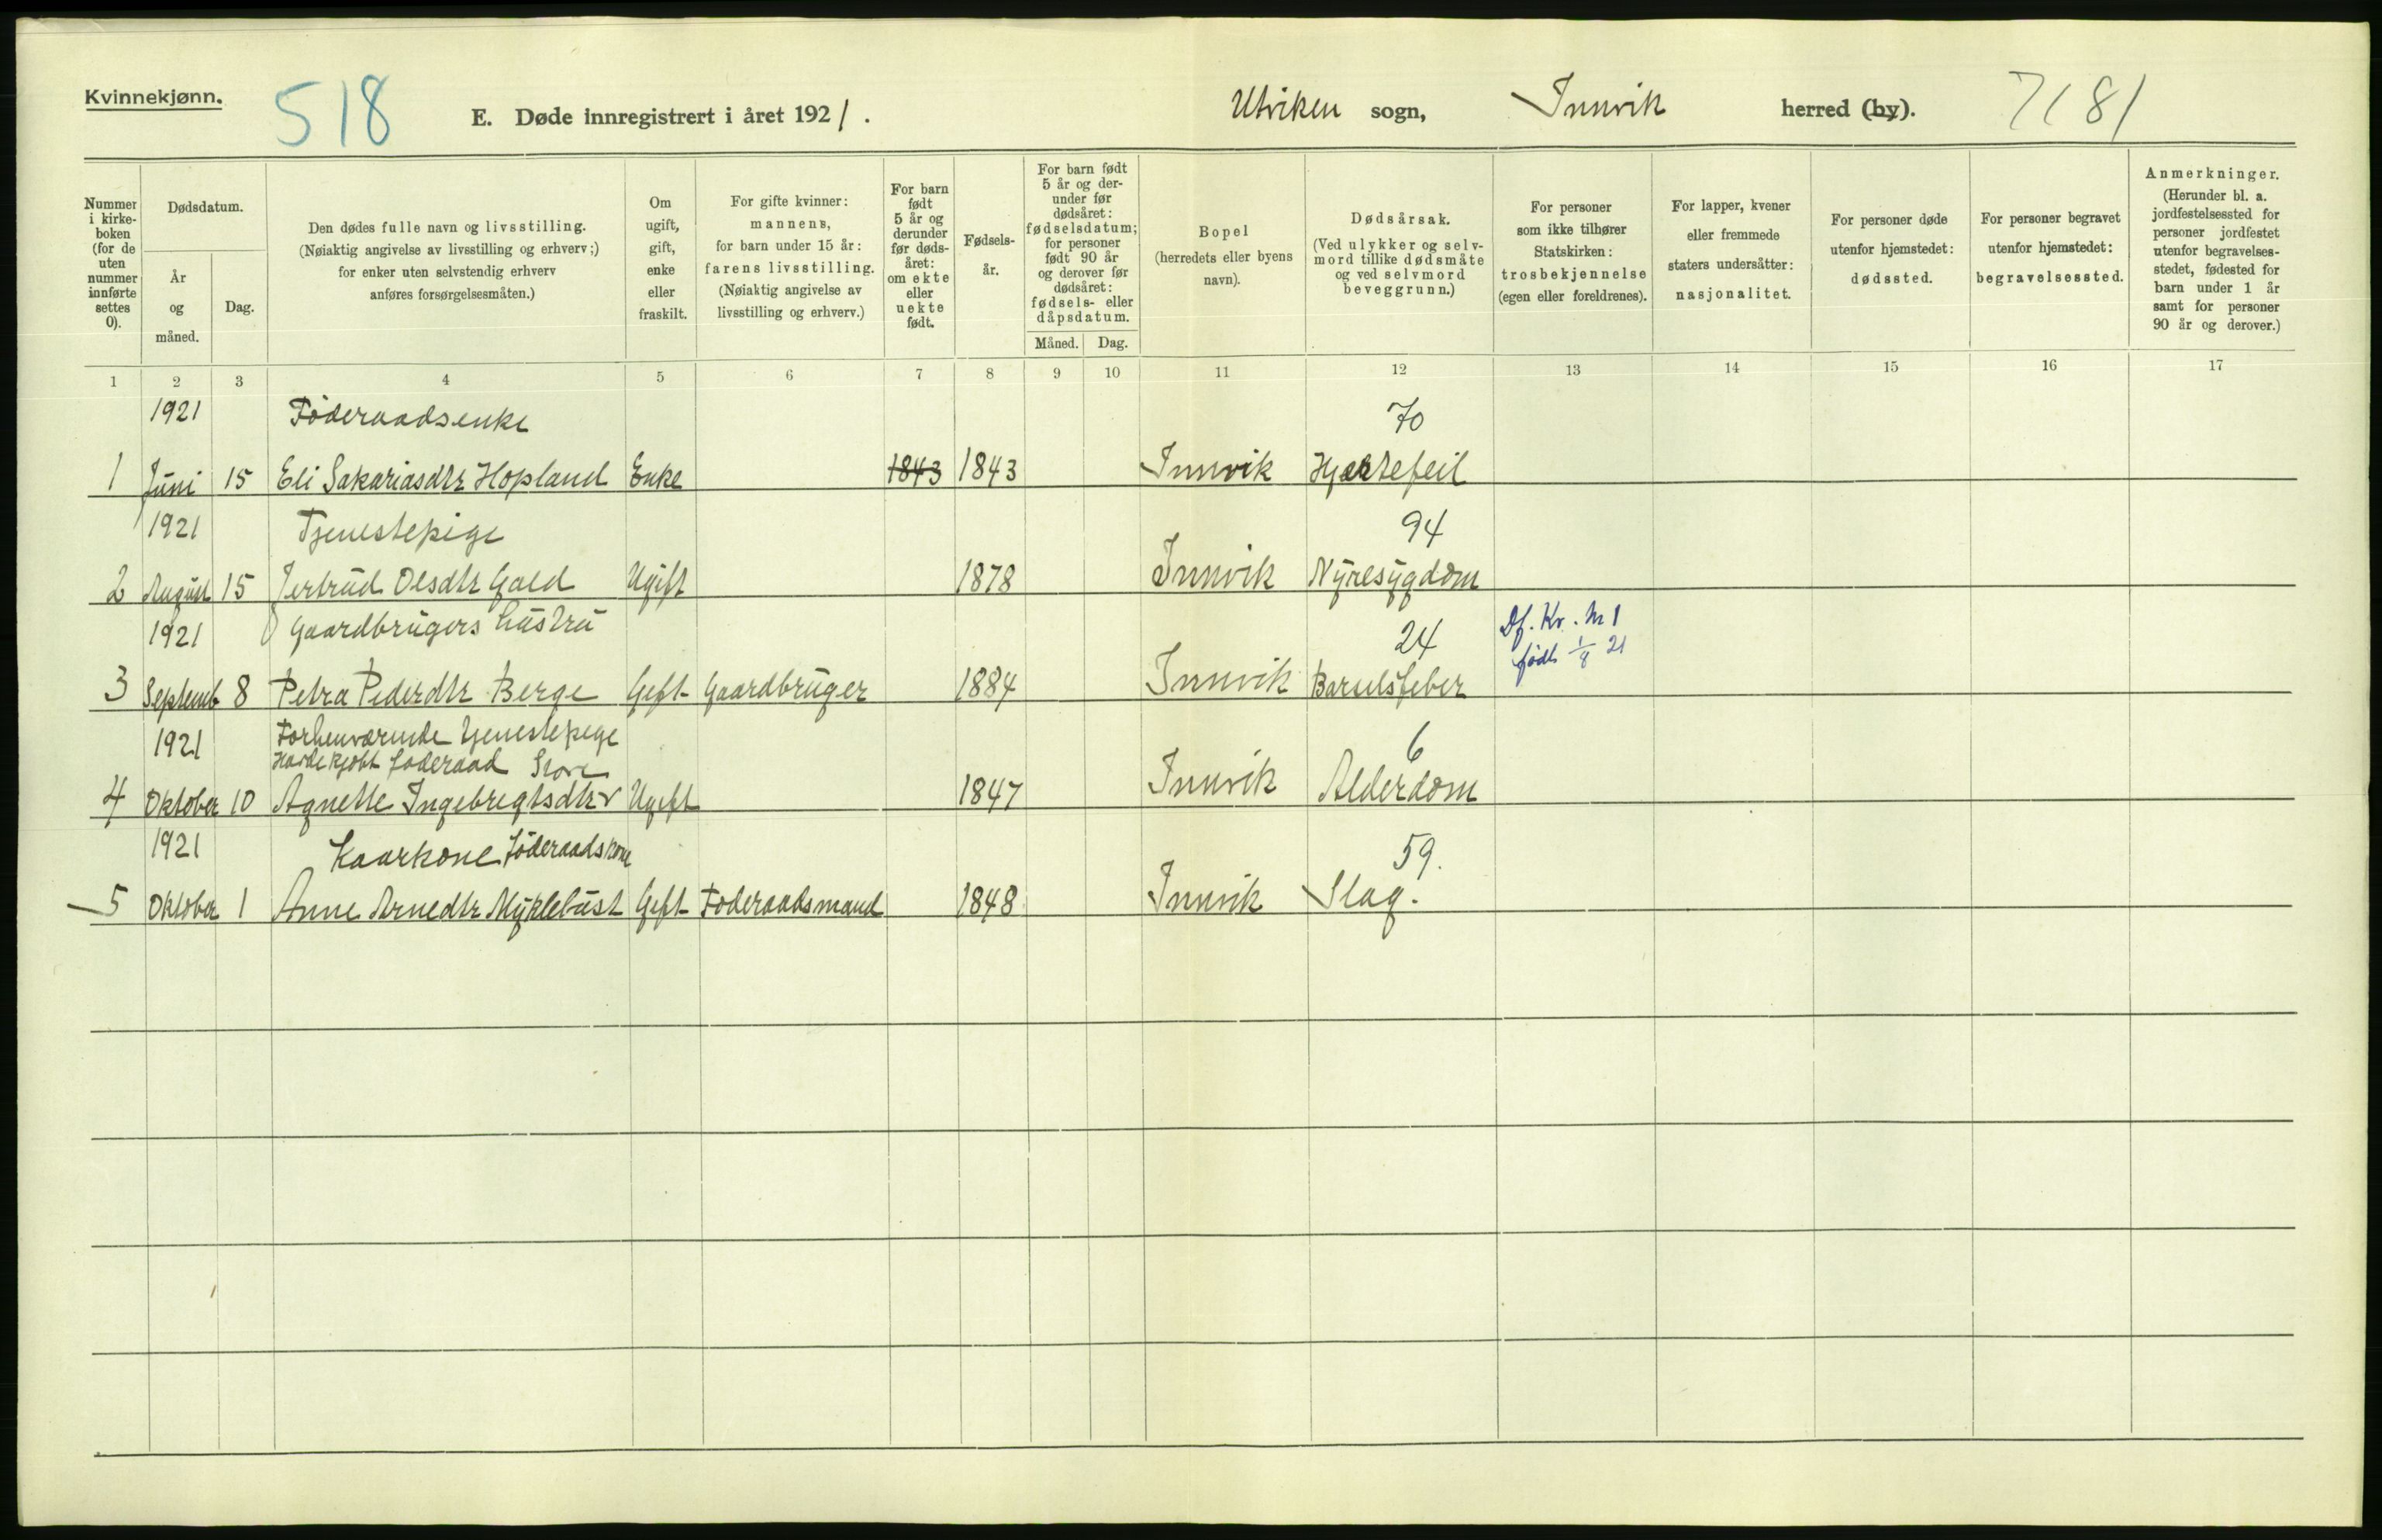 Kvinnekjønn.
518
E. Døde innregistrert i året 1921.
Utviken sogn,
Innvik herred (by).
7181
Nummer
i kirke-
boken
(for de
uten
nummer
innførte
settes
0).
Dødsdatum.
År
og
måned.
Dag.
Den dødes fulle navn og livsstilling.
(Nøiaktig angivelse av livsstilling og erhverv;)
for enker uten selvstendig erhverv
anføres forsørgelsesmåten.)
Om
ugift,
gift,
enke
eller
fraskilt.
For gifte kvinner:
mannens,
for barn under 15 år:
farens livsstilling.
(Nøiaktig angivelse av
livsstilling og erhverv.)
For barn
født
5 år og
derunder
før døds-
året:
om ekte
eller
uekte
født.
Fødsels-
år.
For barn født
5 år og der-
under før
dødsåret:
fødselsdatum;
for personer
født 90 år
og derover før
dødsåret:
fødsels- eller
dåpsdatum.
Måned. Dag.
Bopel
(herredets eller byens
navn).
Dødsårsak.
(Ved ulykker og selv-
mord tillike dødsmåte
og ved selvmord
beveggrunn.)
For personer
som ikke tilhører
Statskirken:
trosbekjennelse
(egen eller foreldrenes).
For lapper, kvener
eller fremmede
staters undersåtter:
nasjonalitet.
For personer døde
utenfor hjemstedet:
dødssted.
For personer begravet
utenfor hjemstedet:
begravelsessted.
Anmerkninger.
(Herunder bl. a.
jordfestelsessted for
personer jordfestet
utenfor begravelses-
stedet, fødested for
barn under 1 år
samt for personer
90 år og derover.)
1 2 3 4 5 6 7 8 9 10 11 12 13 14 15 16 17
1921 Föderaadsenke 70
1 Juni 15 Eli Sakariasdtr Hopland Enke 1843 1843 Innvik Hjertefeil
1921 Tjenestepige 94
2 August 15 Jertrud Olsdtr Gald Ugift 1878 Innvik Nyresygdom
1921 Gaardbrugers hustru 24 Df. Kv. Nr 1
født 1/8 21
3 Septemb 8 Petra Pederdtr Berge Gift Gaardbruger 1884 Innvik Barselsfeber
1921 Forhenværende tjenestepige 6
Havde kjøbt föderaad Store
4 Oktober 10 Agnette Ingebregtsdtr Ugift 1847 Innvik Alderdom
1921 Kaarkone Föderaadskone 59.
5 Oktober 1 Anne Arnedtr Myklebust Gift Föderaadsmand 1848 Innvik Slag.